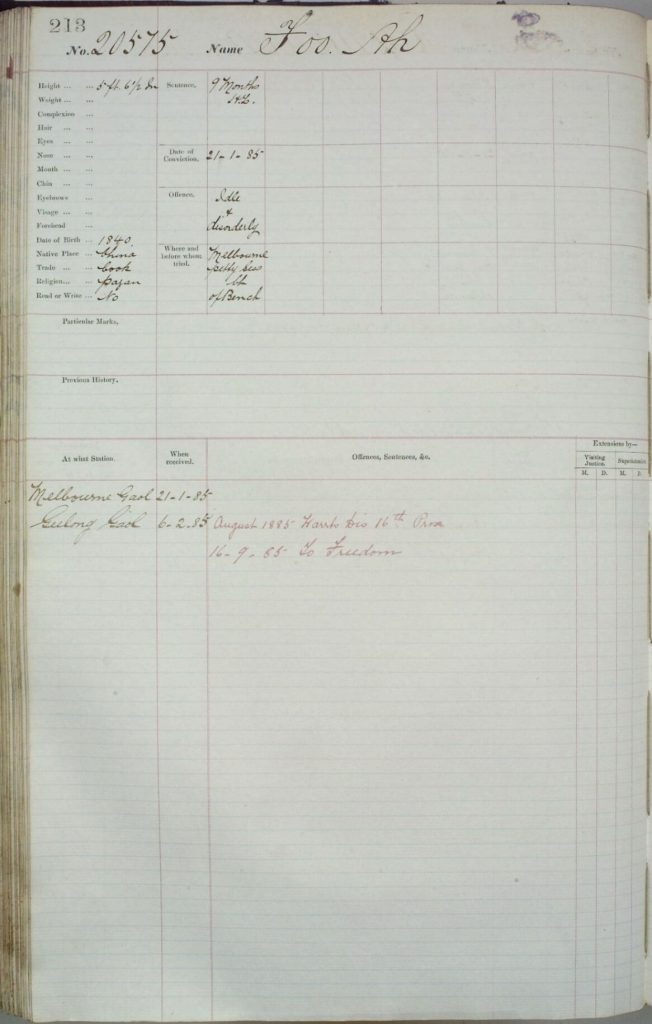 213
No. 20575 Name Foo. Ah
Height ... ... 5 ft. 6 1/2 In
Weight ... ...
Complexion ...
Hair ... ...
Eyes ... ...
Nose ... ...
Mouth ... ...
Chin ... ...
Eyebrows ...
Visage ... ...
Forehead ...
Date of Birth ... 1840.
Native Place ... China
Trade ... ... Cook
Religion... ... Pagan
Read or Write ... No
Sentence. 9 Months
H.L.
Date of
Conviction. 21-1-85
Offence. Idle
&
disorderly
Where and
before whom
tried.
Melbourne
petty sess
of Bench
Particular Marks.
Previous History.
At what Station.
When
received.
Offences, Sentences, &c.
Extensions by—
Visiting
Justice.
M. D. M. D.
Melbourne Gaol 21-1-85
Geelong Gaol 6-2-85 August 1885 16th Prox
16-9-85 To Freedom